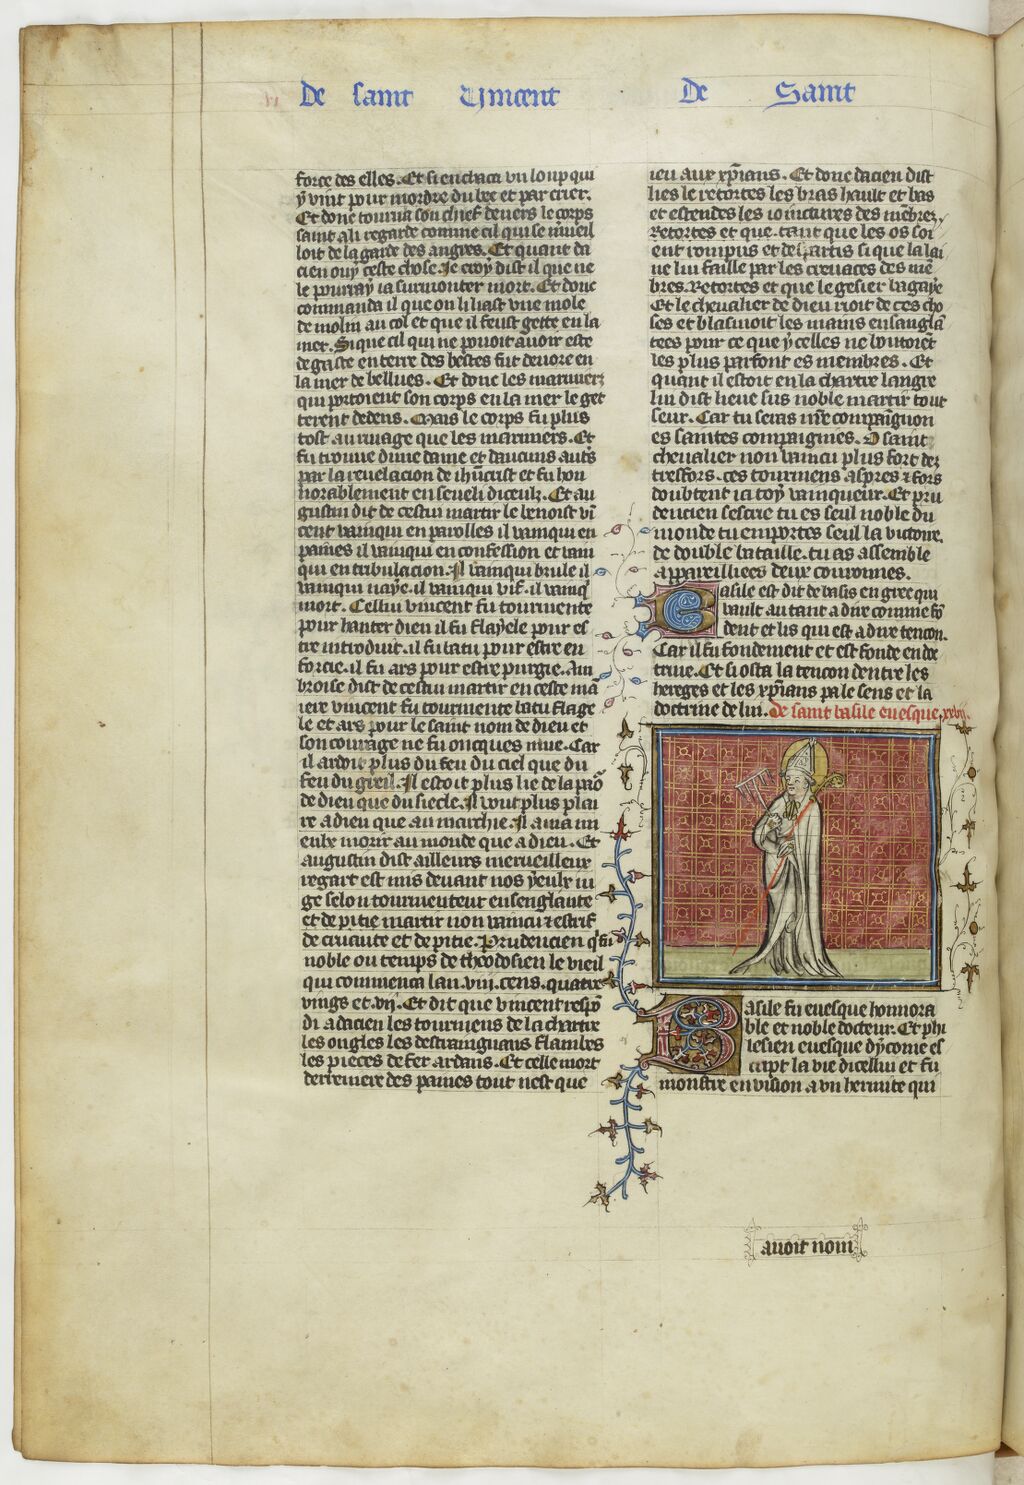 De saint Vincent De Saint
force des elles. Et si enchaca un loup qui
y vint pour mordre du bec et par crier.
Et donc tourna son chief devers le corps
saint ali regarde comme cil qui se mueil
loit de la garde des angres. Et quant da
cien ouy ceste chose. Je croy dist il que ne
le pourray ia surmonter mort. Et donc
commanda il que on li liast une mole
de molin au col et que il feust gette en la
mer. Si que cil qui ne pouoit auoir este
degaste en terre des bestes fut deuore en
la mer de bellues. Et donc les mariniers
qui portoient son corps en la mer le get
terent dedens. Mais le corps fu plus
tost au riuage que les mariniers. Et
fu trouue dune dame et daucuns autres
par la reuelacion de ihucrist et fu hon
norablement en seueli diceulz. Et au
gustin dit de cestui martir le benoist vi
cent vainqui en parolles il vainqui en
paines il vainqui en confession et vain
qui en tribulacion. Il vainqui brule il
vainqui naye. il vainqui vif. il vainq
mort. Cellui vincent fu tourmente
pour hanter dieu il fu flayele pour es
tre introduit. il fu batu pour estre en
forcie. il fu ars pour estre purgie. Am
broise dist de cestui martir en ceste ma
iere vincent fu tourmente batu flage
le et ars pour le saint nom de dieu et
son courage ne fu oncques mue. Car
il ardoit plus du feu du ciel que du
feu du greil. Il estoit plus lie de la pao
de dieu que du siecle. Il vout plus plai
re a dieu que au marchie. Il ama mi
eulx morir au monde que a dieu. Et
augustin dist ailleurs merueilleux
regart est mis deuant nos yeulx iu
ge selon tourmenteur ensenglante
et de pitie martir non vaincu estrif
de cruaute et de pitie. Prudencien q fu
noble ou temps de theodosien le vieil
qui commenca lan .viii. cens. quatre
vings et .vii. Et dit que vincent respo
di a dacien les tourmens de la chartre
les ongles les destraignans flambes
les pieces de fer ardans. Et celle mort
derreniere des paines tout nest que
ieu aux xpians. Et donc dacien dist
lies le retortes les bras hault et bas
et estendes les iointures des mebrez
Retortes et que tant que les os soi
ent rompus et departis si que la lai
ne lui faille par les creuaces des me
bres. Retortes et que le gesier bagaye
Et le cheualier de dieu rioit de ces cho
ses et blasmoit les mains ensangla
tees pour ce que ycelles ne boutoret
les plus parfont es membres. Et
quant il estoit en la chartre langre
lui dist lieue sus noble martir tout
seur. Car tu seras nre compaignon
es saintes compaignies. O saint
cheualier non vaincu plus fort dez
tresfors. ces tourmens aspres et fors
doubtent ici toy vainqueur. Et pru
dencien sescrie tu es seul noble du
monde tu emportes seul la victoire
de double bataille. tu as assemble
appareilliees deux couronnes.
Basile est dit de basis en grec qui
vault autant a dire comme fo
dent et lis qui est a dire tencon.
Car il fu fondement et est fonde en doc
trine. Et si osta la tencon dentre les
hereges et les xpians par le sens et la
doctrine de lui. De saint basile euesque. xxvii.
Basile fu euesque honnora
ble et noble docteur. Et phi
lesien euesque dyconie es
cript la vie dicellui et fu
monstre en vision a un hermite qui
auoit nom